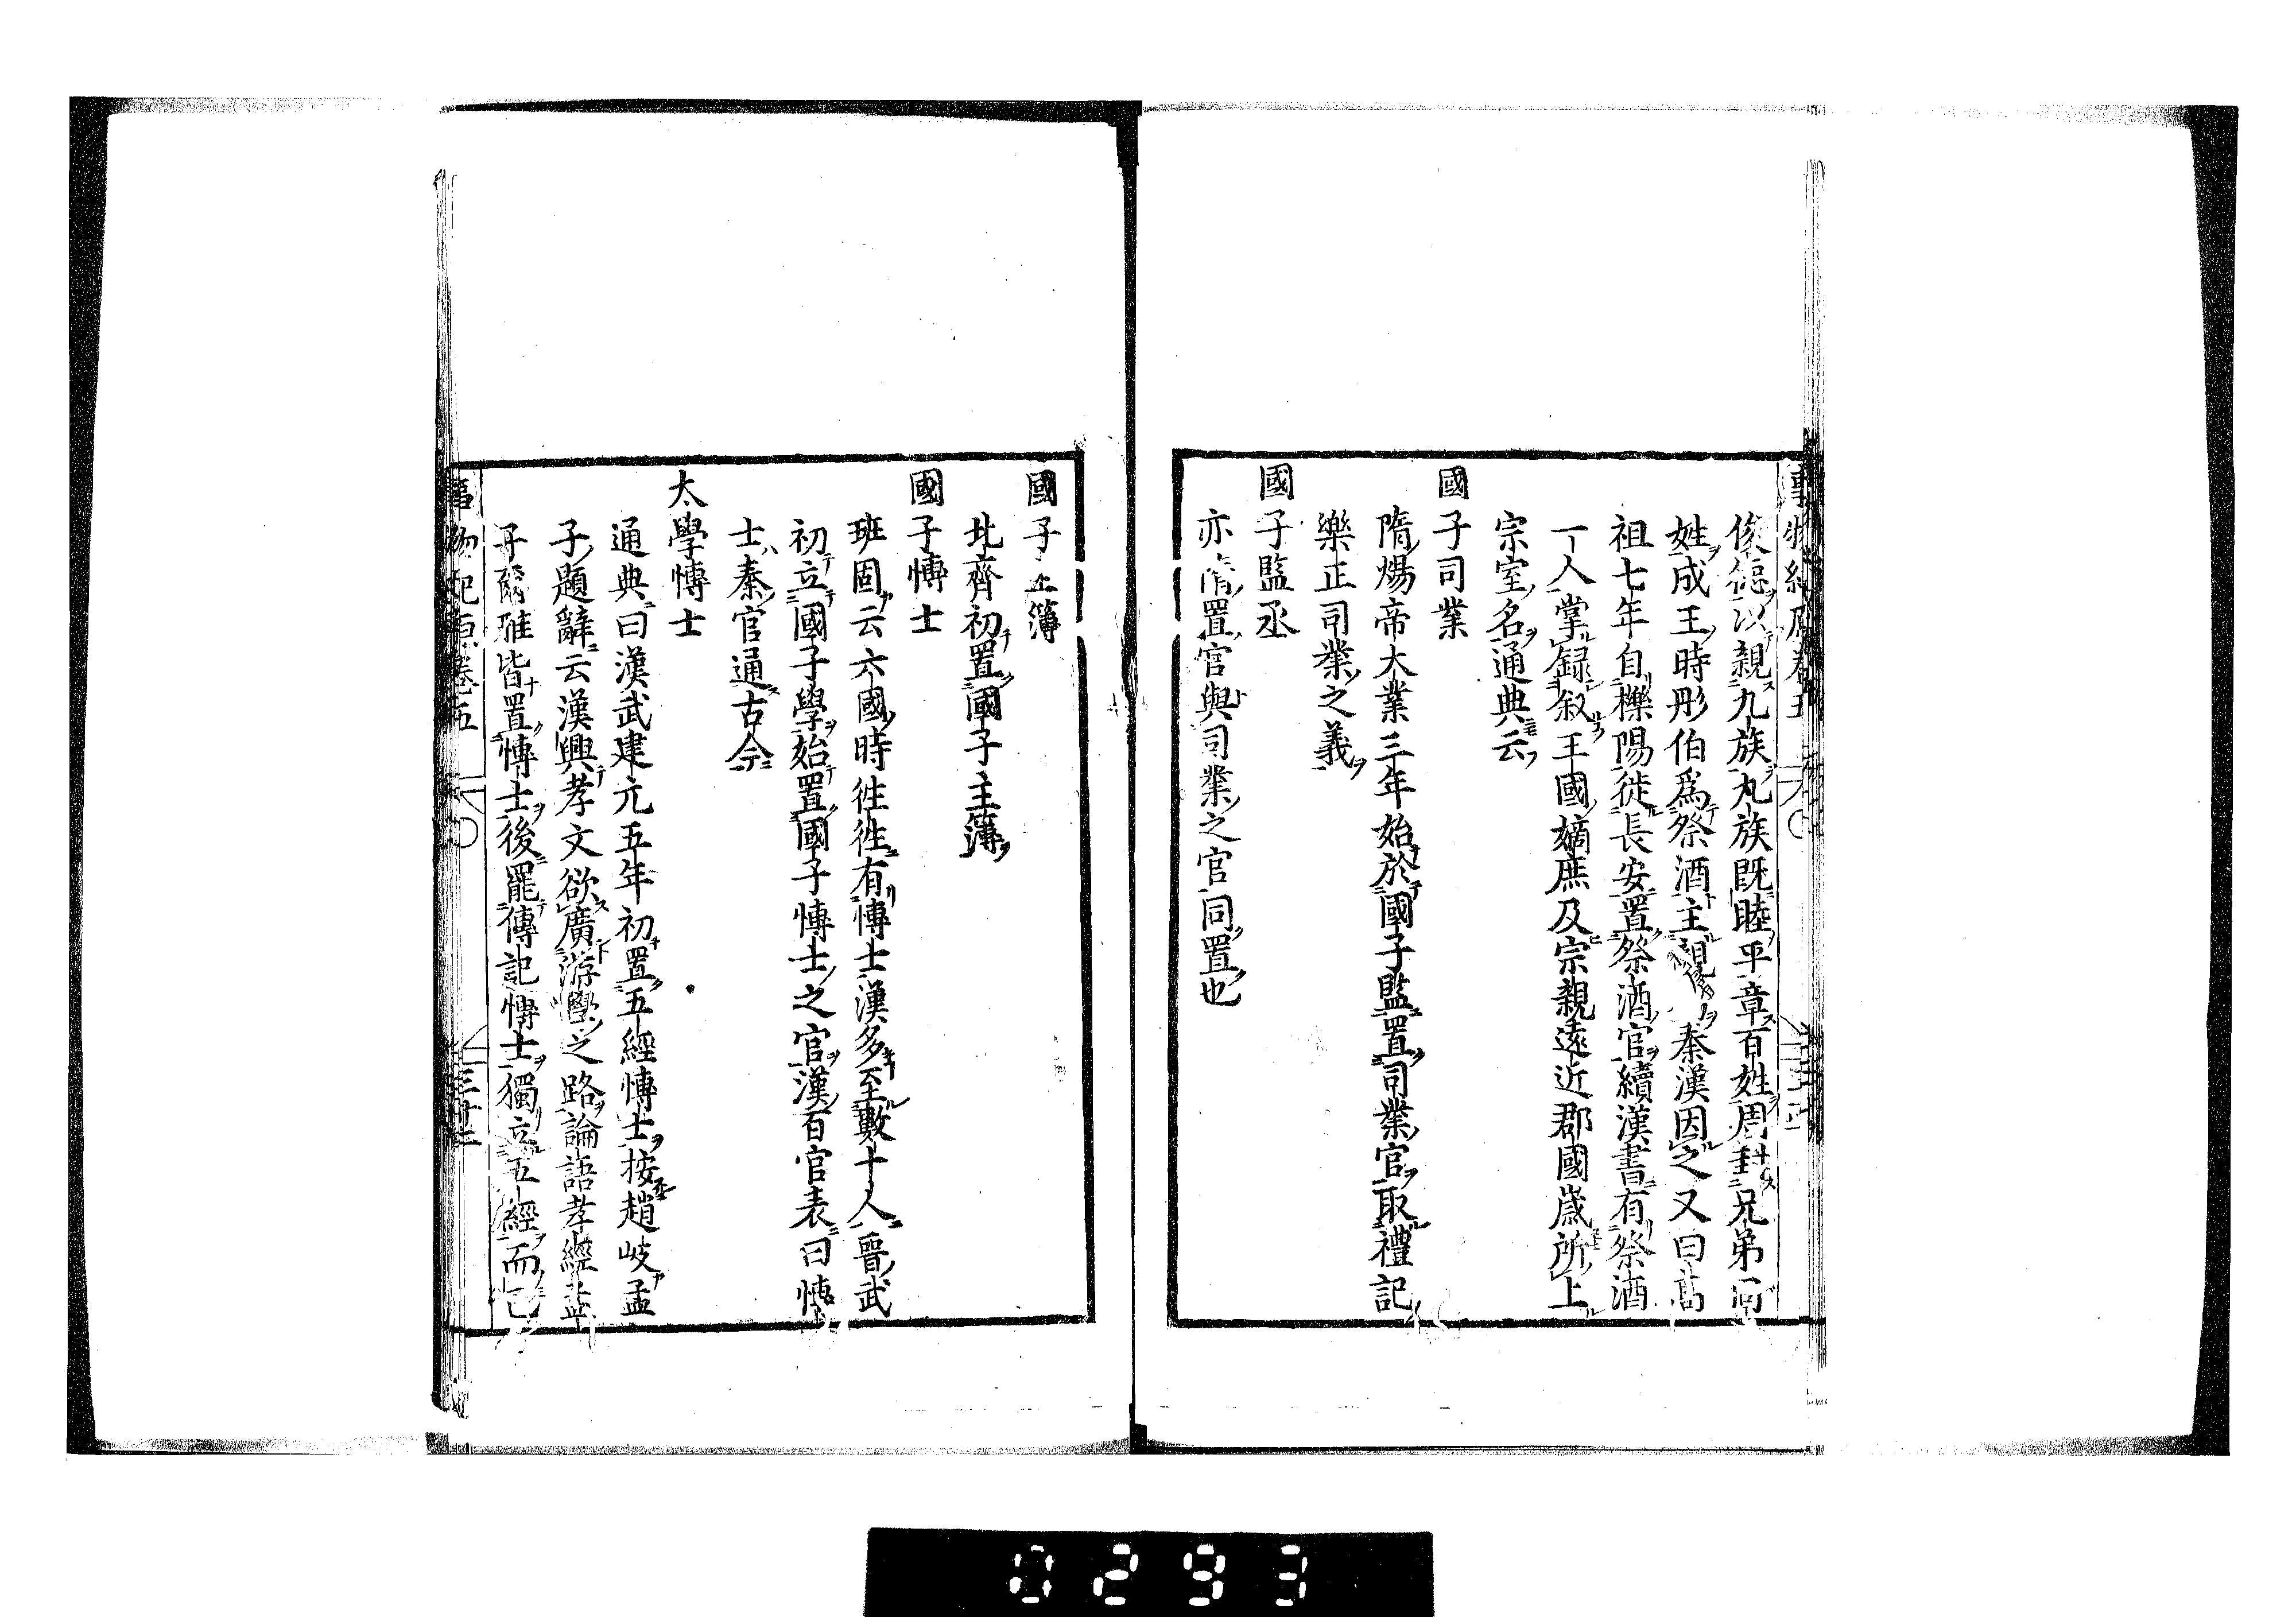 俊德以親九族九族既睦平章百姓周封兄弟同
姓成王時彤伯爲祭酒主親屬 秦漢因之又曰高
祖七年自櫟陽徙長安置祭酒官續漢書有祭酒
一人掌録叙王國嫡庶及宗親遠近郡國歲所上
宗室名通典云
國子司業
隋煬帝大業三年始於國子監置司業官取禮記
樂正司業之義
國子監丞
亦隋置官與司業之官同置也
國子主簿
北齊初置國子主簿
國子博士
班固云六國時徃徃有博士漢多至數十人晋武
初立國子學始置國子博士之官漢百官表曰博
士秦官通古今
太學博士
通典曰漢武建元五年初置五經博士按趙岐孟
子題辭云漢興孝文欲廣游學之路論語孝經孟
子爾雅皆置博士後罷傳記博士獨立五經而已
事物紀原卷五 三十二
0293